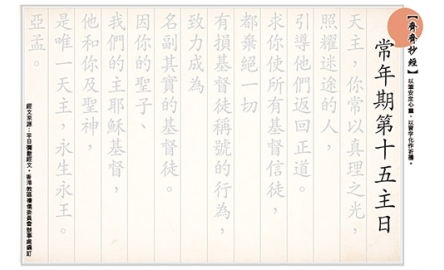 【齊齊抄經】以筆安定心靈，以寫字化作祈禱。
常年期第十五主日
天主，你常以真理之光，
照耀迷途的人，
引導他們返回正道。
求你使所有基督信徒，
都棄絕一切
有損基督徒稱號的行為，
致力成為
名副其實的基督徒。
因你的聖子、
我們的主耶穌基督，
他和你及聖神，
是唯一天主，永生永王。
亞孟。
經文來源：平日彌撒經文，香港教區禮儀委員會辦事處編訂